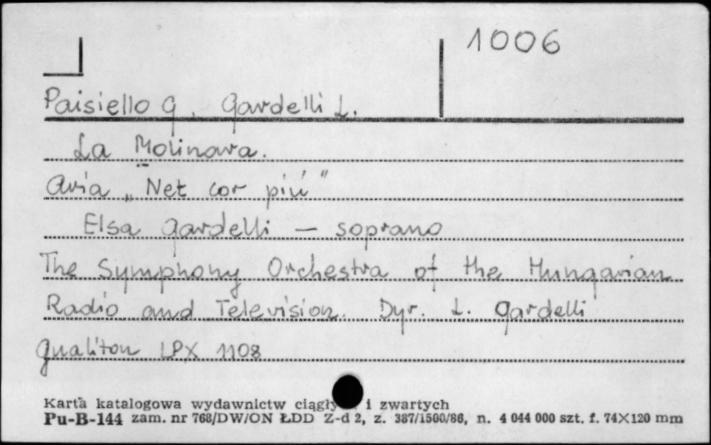 1006
Paisiello G, Gardelli L.
La Molinara.
Aria „Nel cor più"
Elsa Gardelli — soprano
The Symphony Orchestra of the Hungarian
Radio and Television. Dyr. L. Gardelli
Qualiton LPX 1108
Karta katalogowa wydawnictw ciągły i zwartych
Pu-B-144 zam. nr 768/DW/ON ŁDD Z-d 2, z. 387/1500/86, n. 4 044 000 szt. f. 74×120 mm